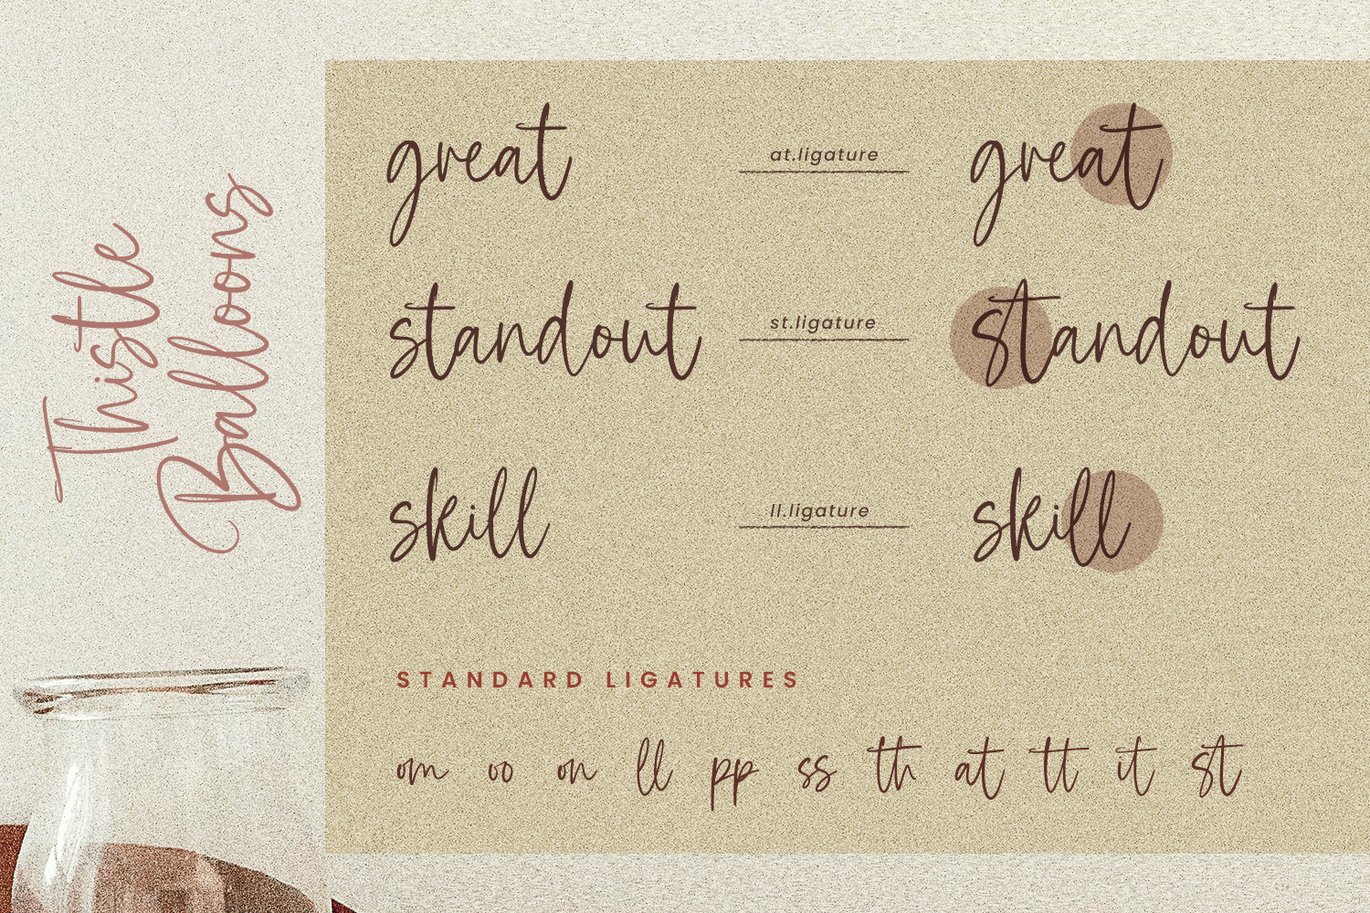 Thistle
Balloons
great at.ligature great
standout st.ligature standout
skill ll.ligature skill
STANDARD LIGATURES
om oo on ll pp ss th at tt it st